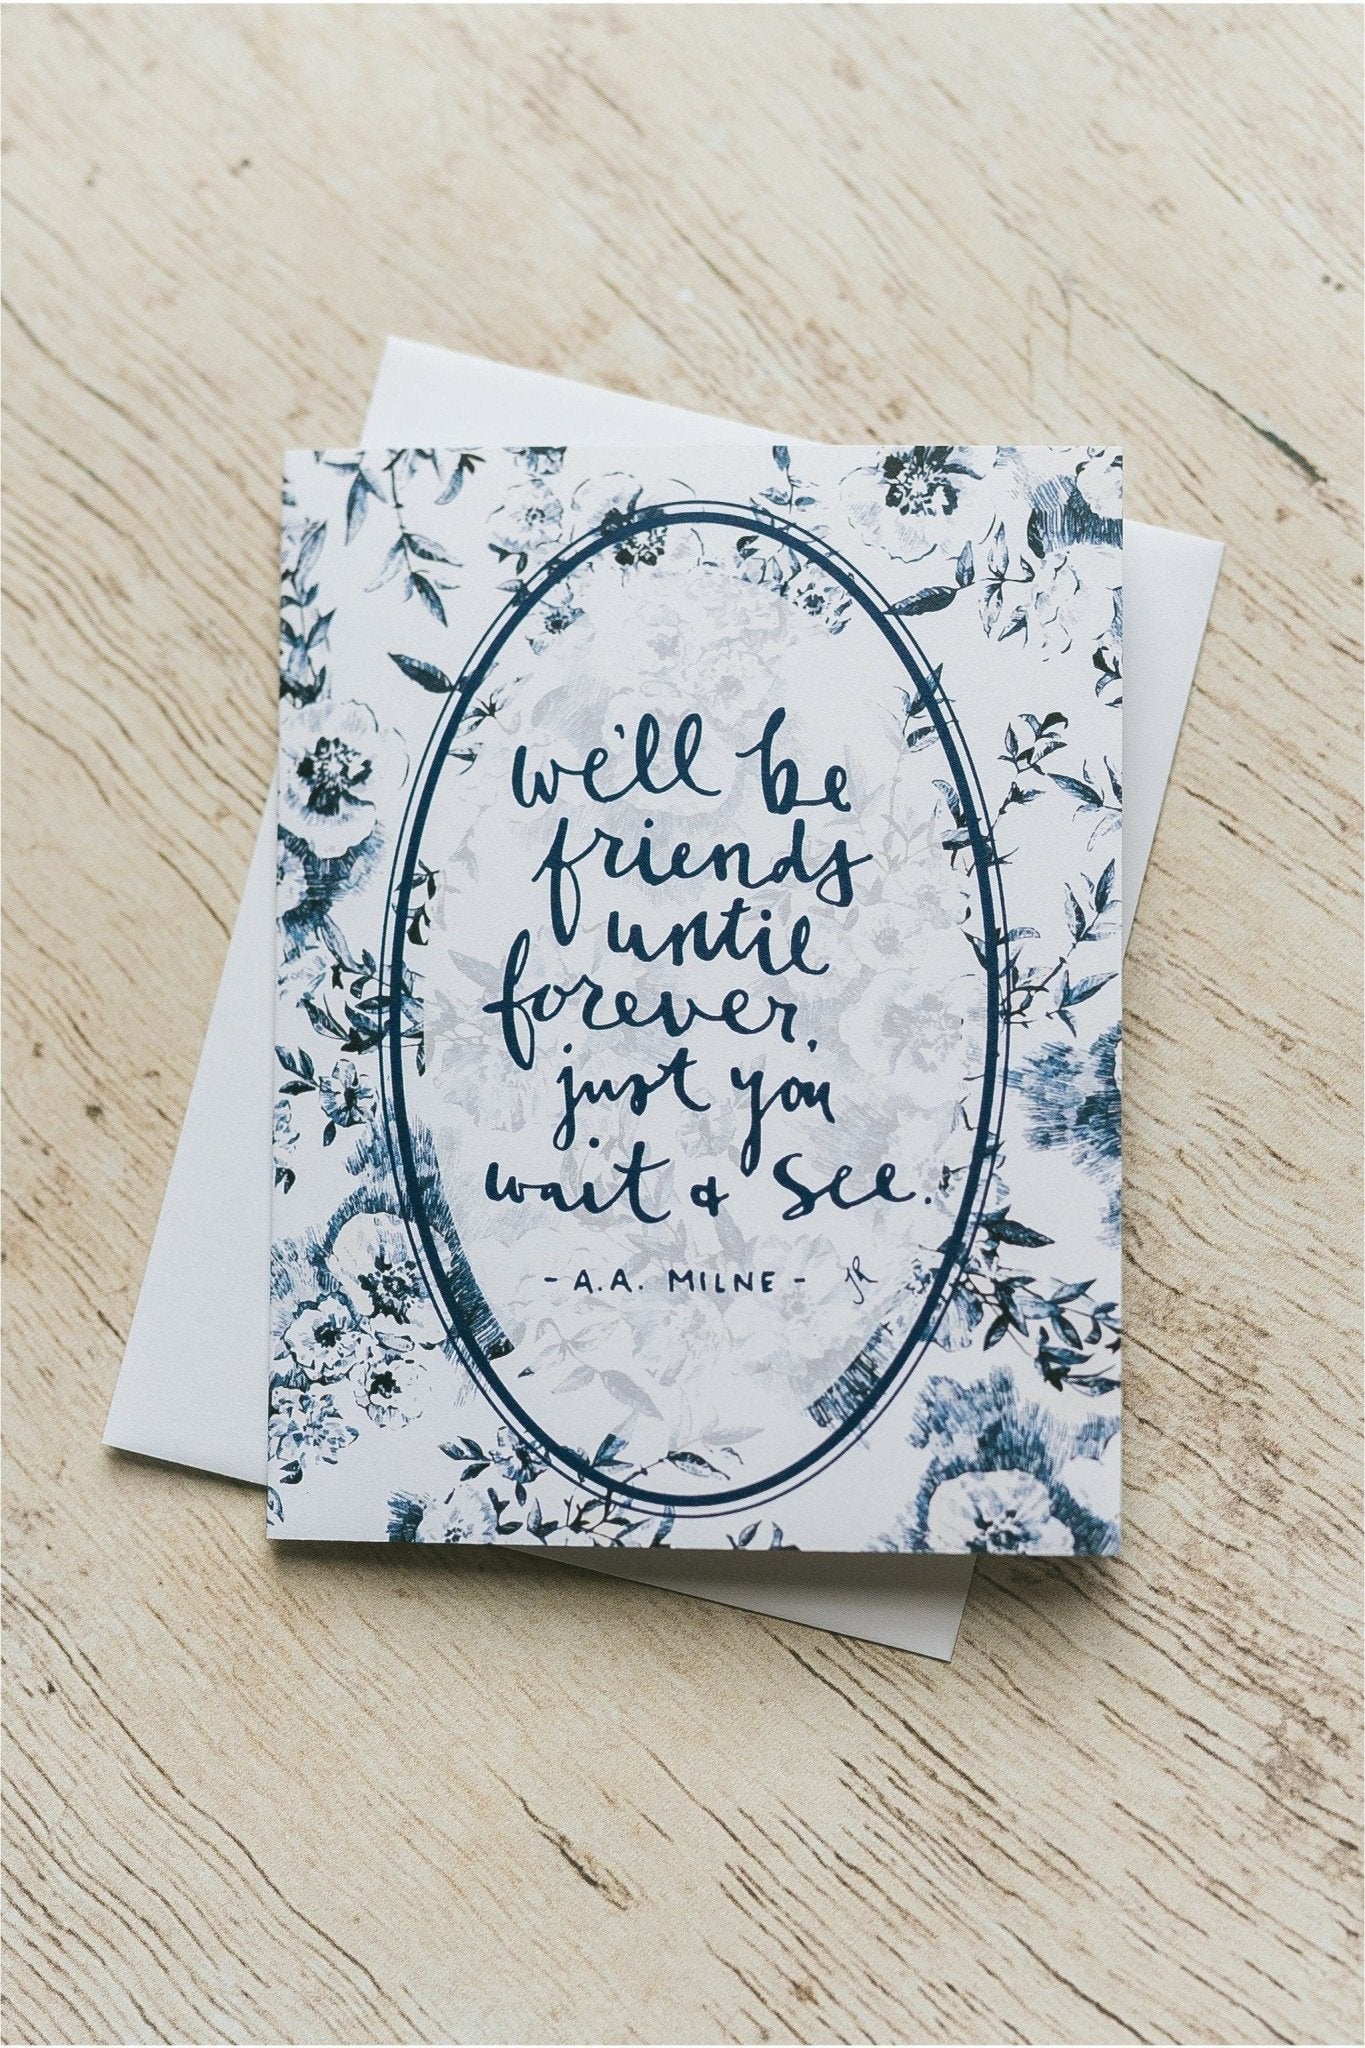 we'll be
friends
until
forever,
just you
wait & see.
- A.A. MILNE - JR